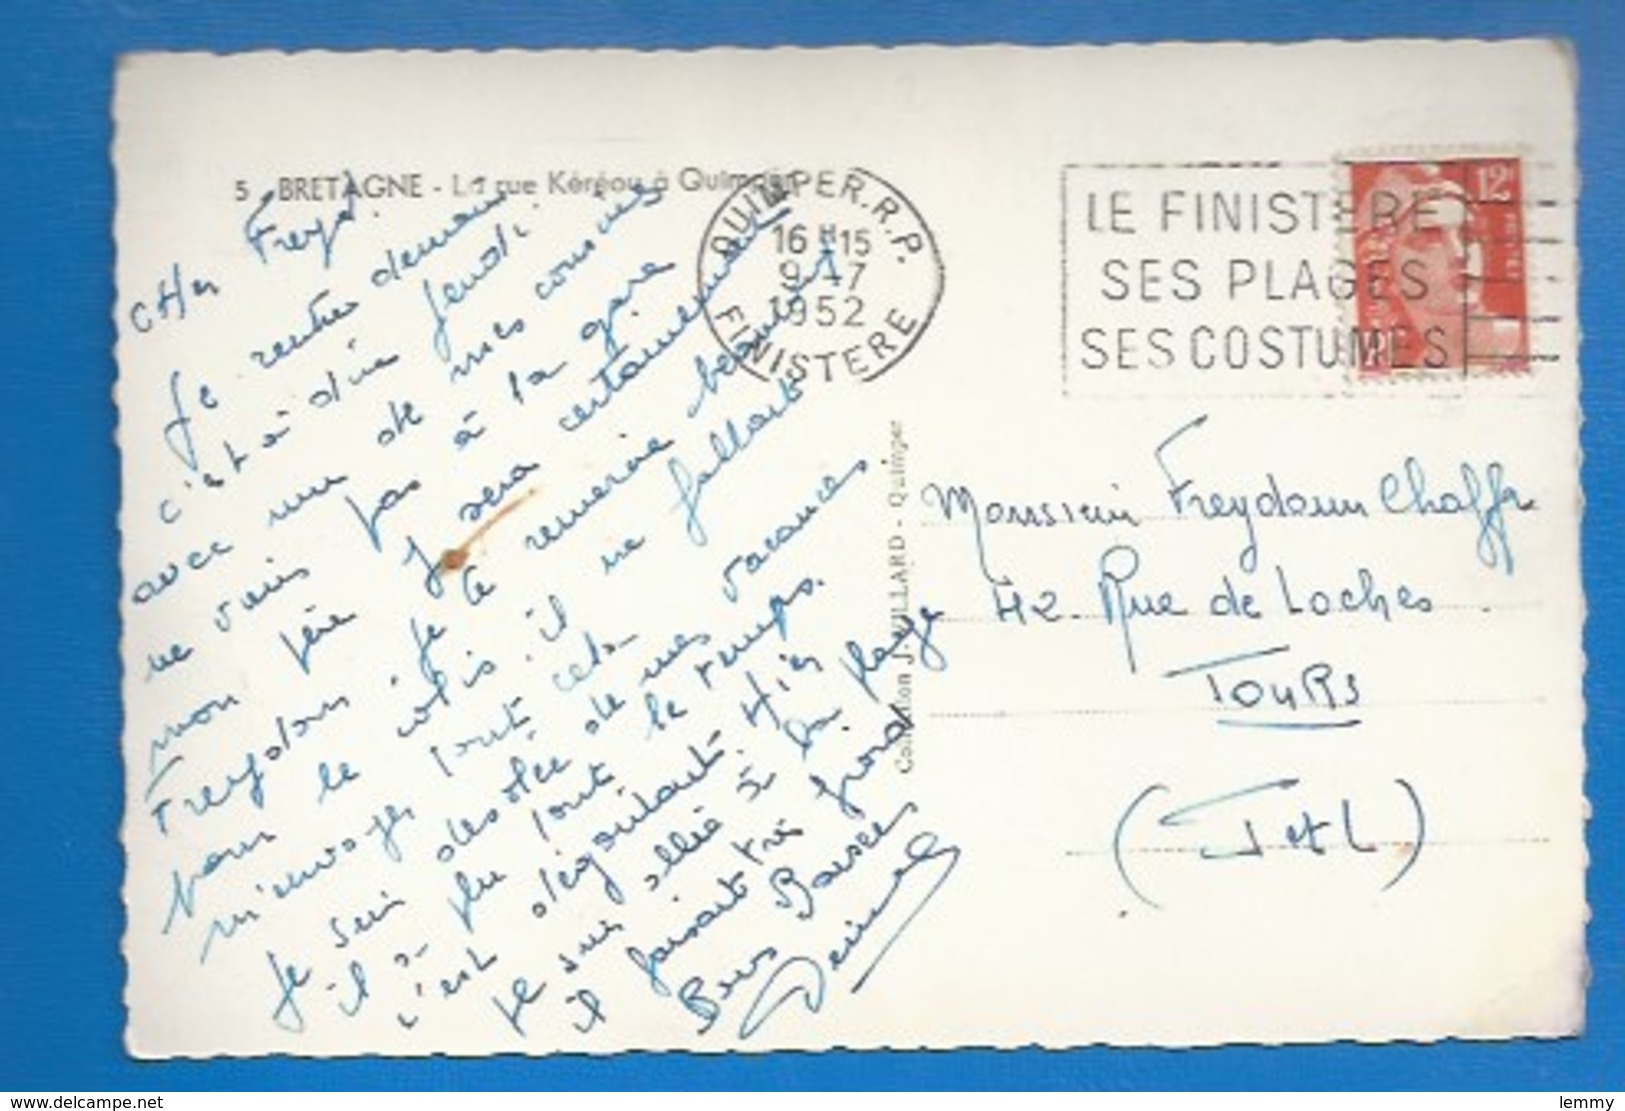 5 - BRETAGNE - La rue Kéréou à Quimper
QUIMPER.R.P.
16 H 15
9 - 7
1952
FINISTERE
LE FINISTERE
SES PLAGES
SES COSTUMES
12F
cher Freyd.
Je rentre demain
c'est à dire jeudi.
avec un de mes cousins
ne viens pas à la gare
mon père y sera certainement
Freydoun je te remercie beaucoup
pour le colis. il ne fallait
m'envoyer tout cela
Je suis désolée de mes vacances
il a plu tout le temps.
c'est dégoutant. Hier
je suis allée à la plage
il faisait très froid
Bons Baisers
Collection J. VILLARD - Quimper
Monsieur Freydoun Chaffr
42 Rue de Loches
TOURS
(I et L)
© delcampe.net
lemmy